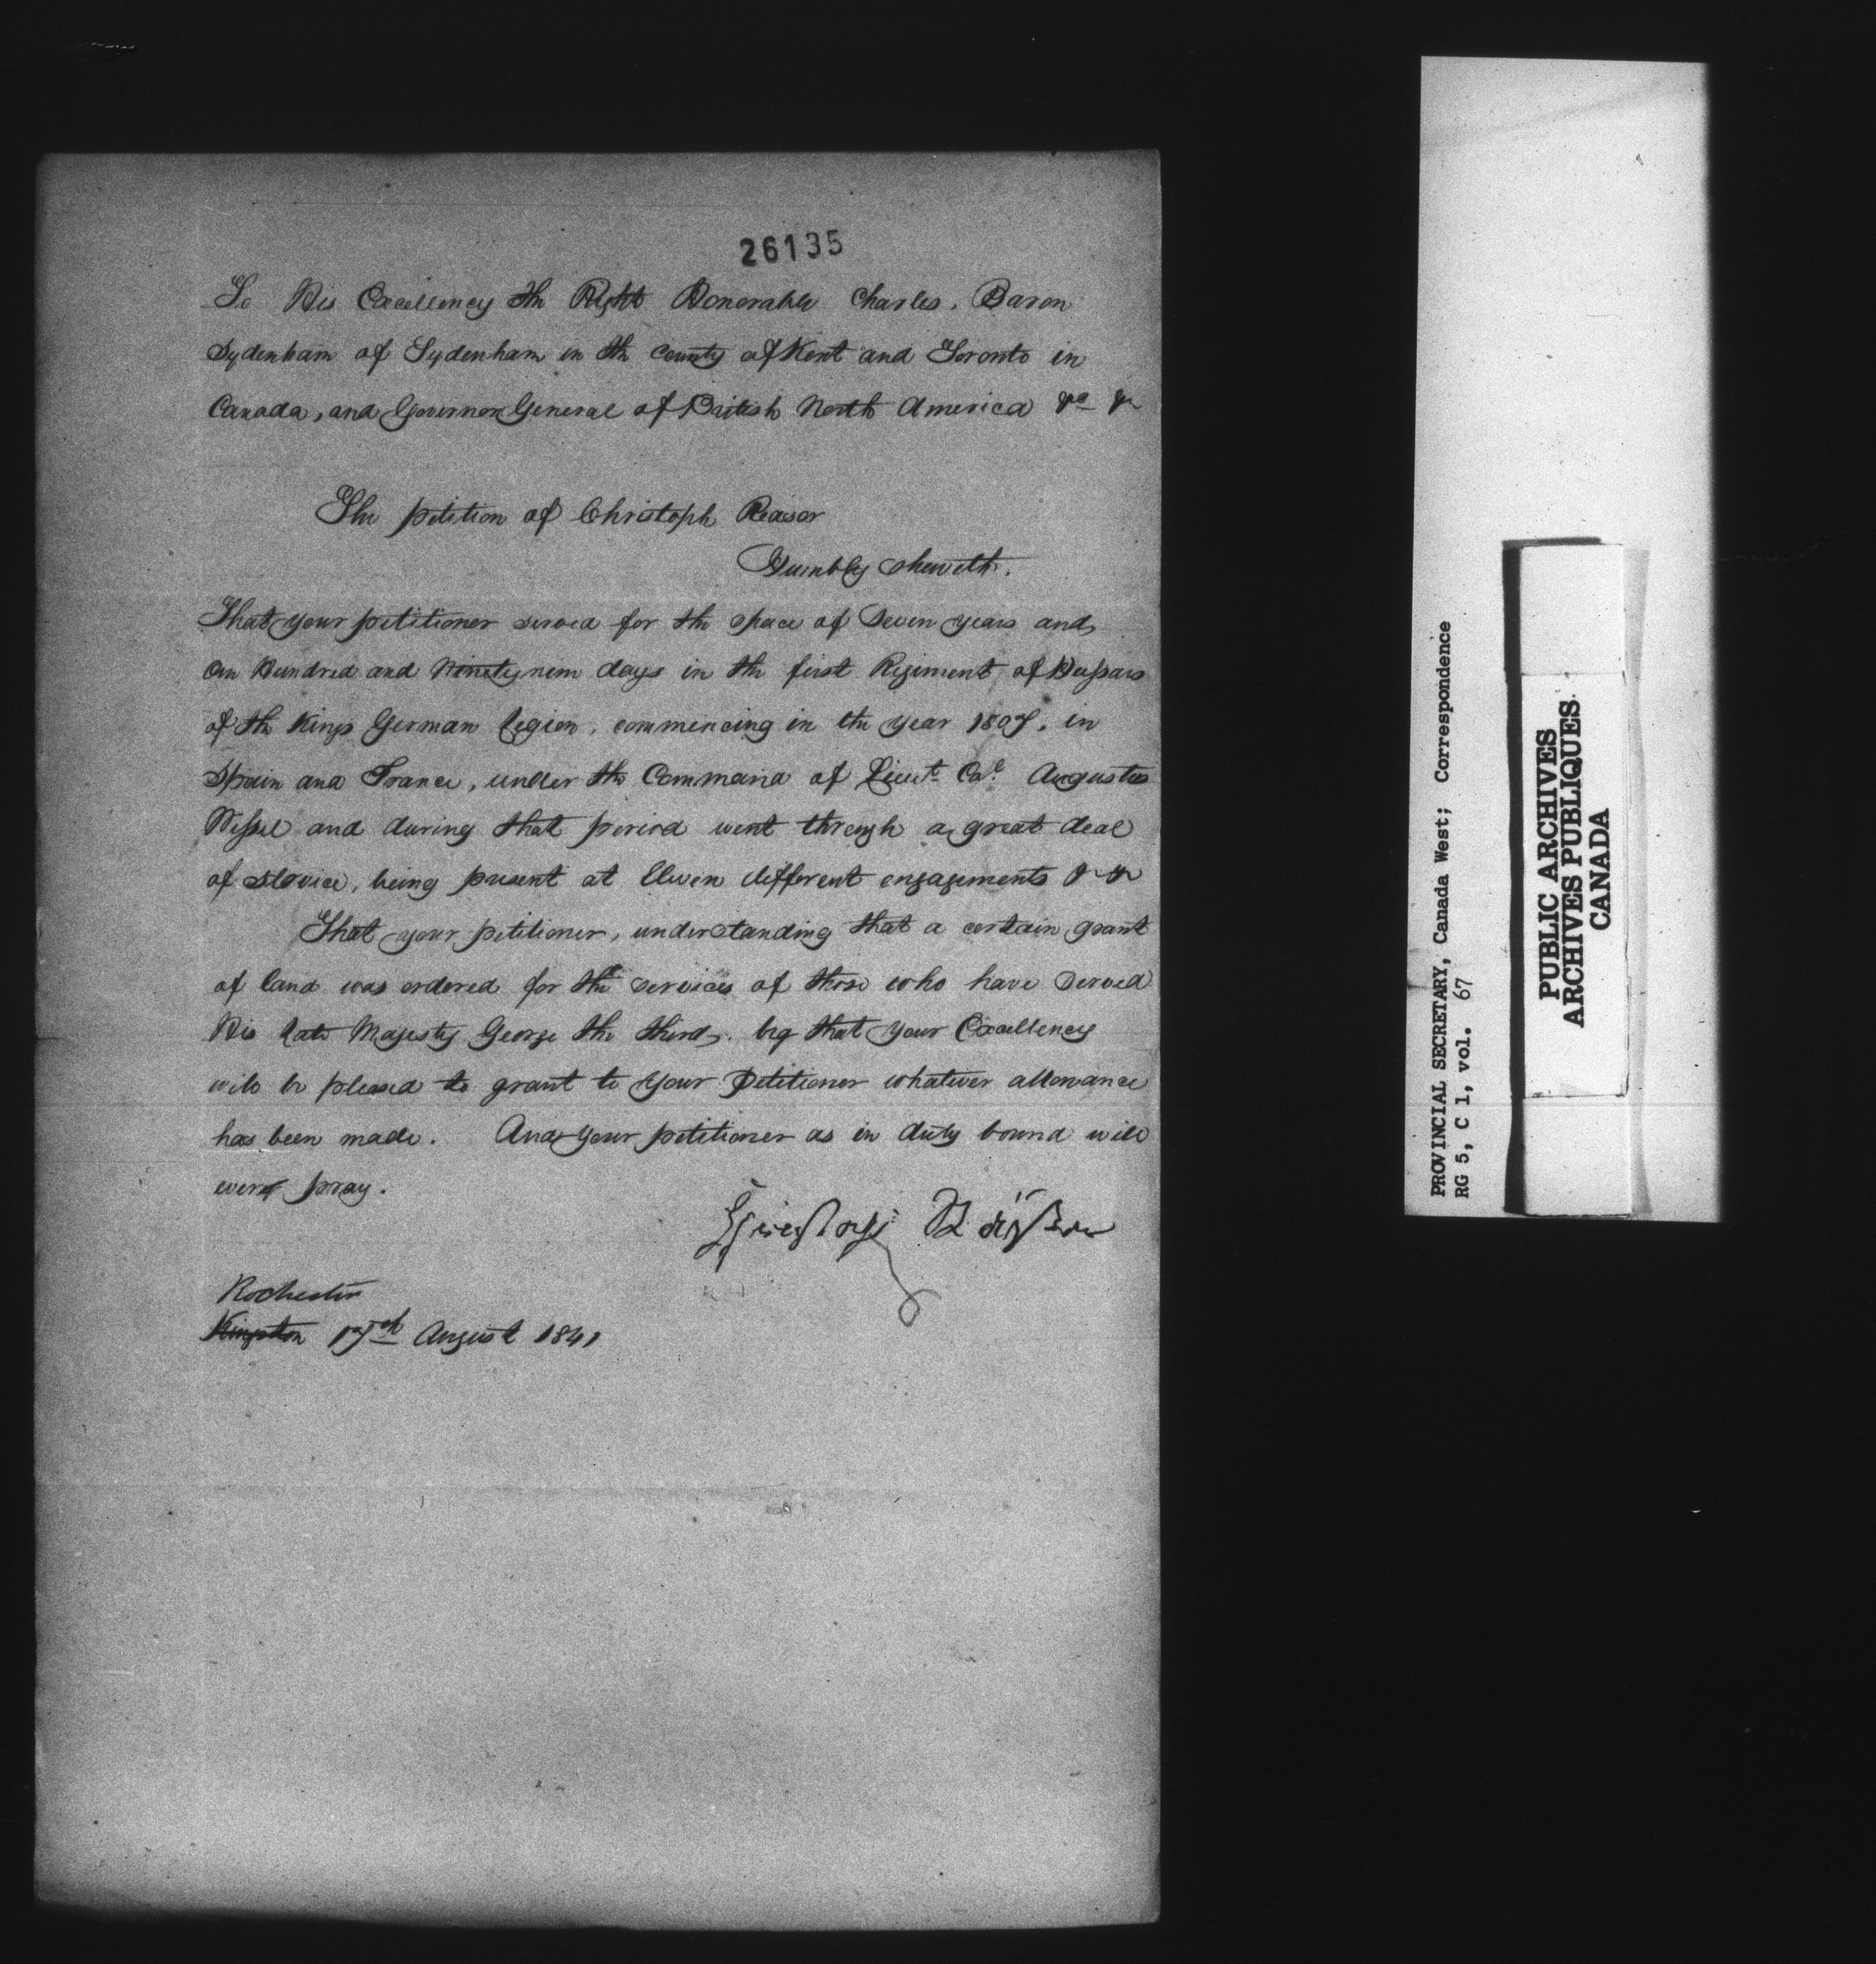 26135
To His Excellency the Right Honorable Charles, Baron
Sydenham of Sydenham in the County of Kent and Toronto in
Canada, and Governor General of British North America &c &c
The petition of Christoph Reasor
Humbly sheweth.
That your petitioner served for the space of Seven years and
one Hundred and Ninety nine days in the first Regiment of Hussars
of the Kings German Legion, commencing in the year 1807, in
Spain and France, under the Command of Lieut Col. Augustus
Wessel and during that period went through a great deal
of service, being present at Eleven different engagements &c &c
That your petitioner, understanding that a certain grant
of land was ordered for the services of those who have served
His late Majesty George the third, beg that your Excellency
will be pleased to grant to your Petitioner whatever allowance
has been made. And your petitioner as in duty bound will
ever pray.
Rochester
Kingston 17th August 1841
PROVINCIAL SECRETARY, Canada West; Correspondence
RG 5, C 1, vol. 67
PUBLIC ARCHIVES
ARCHIVES PUBLIQUES
CANADA